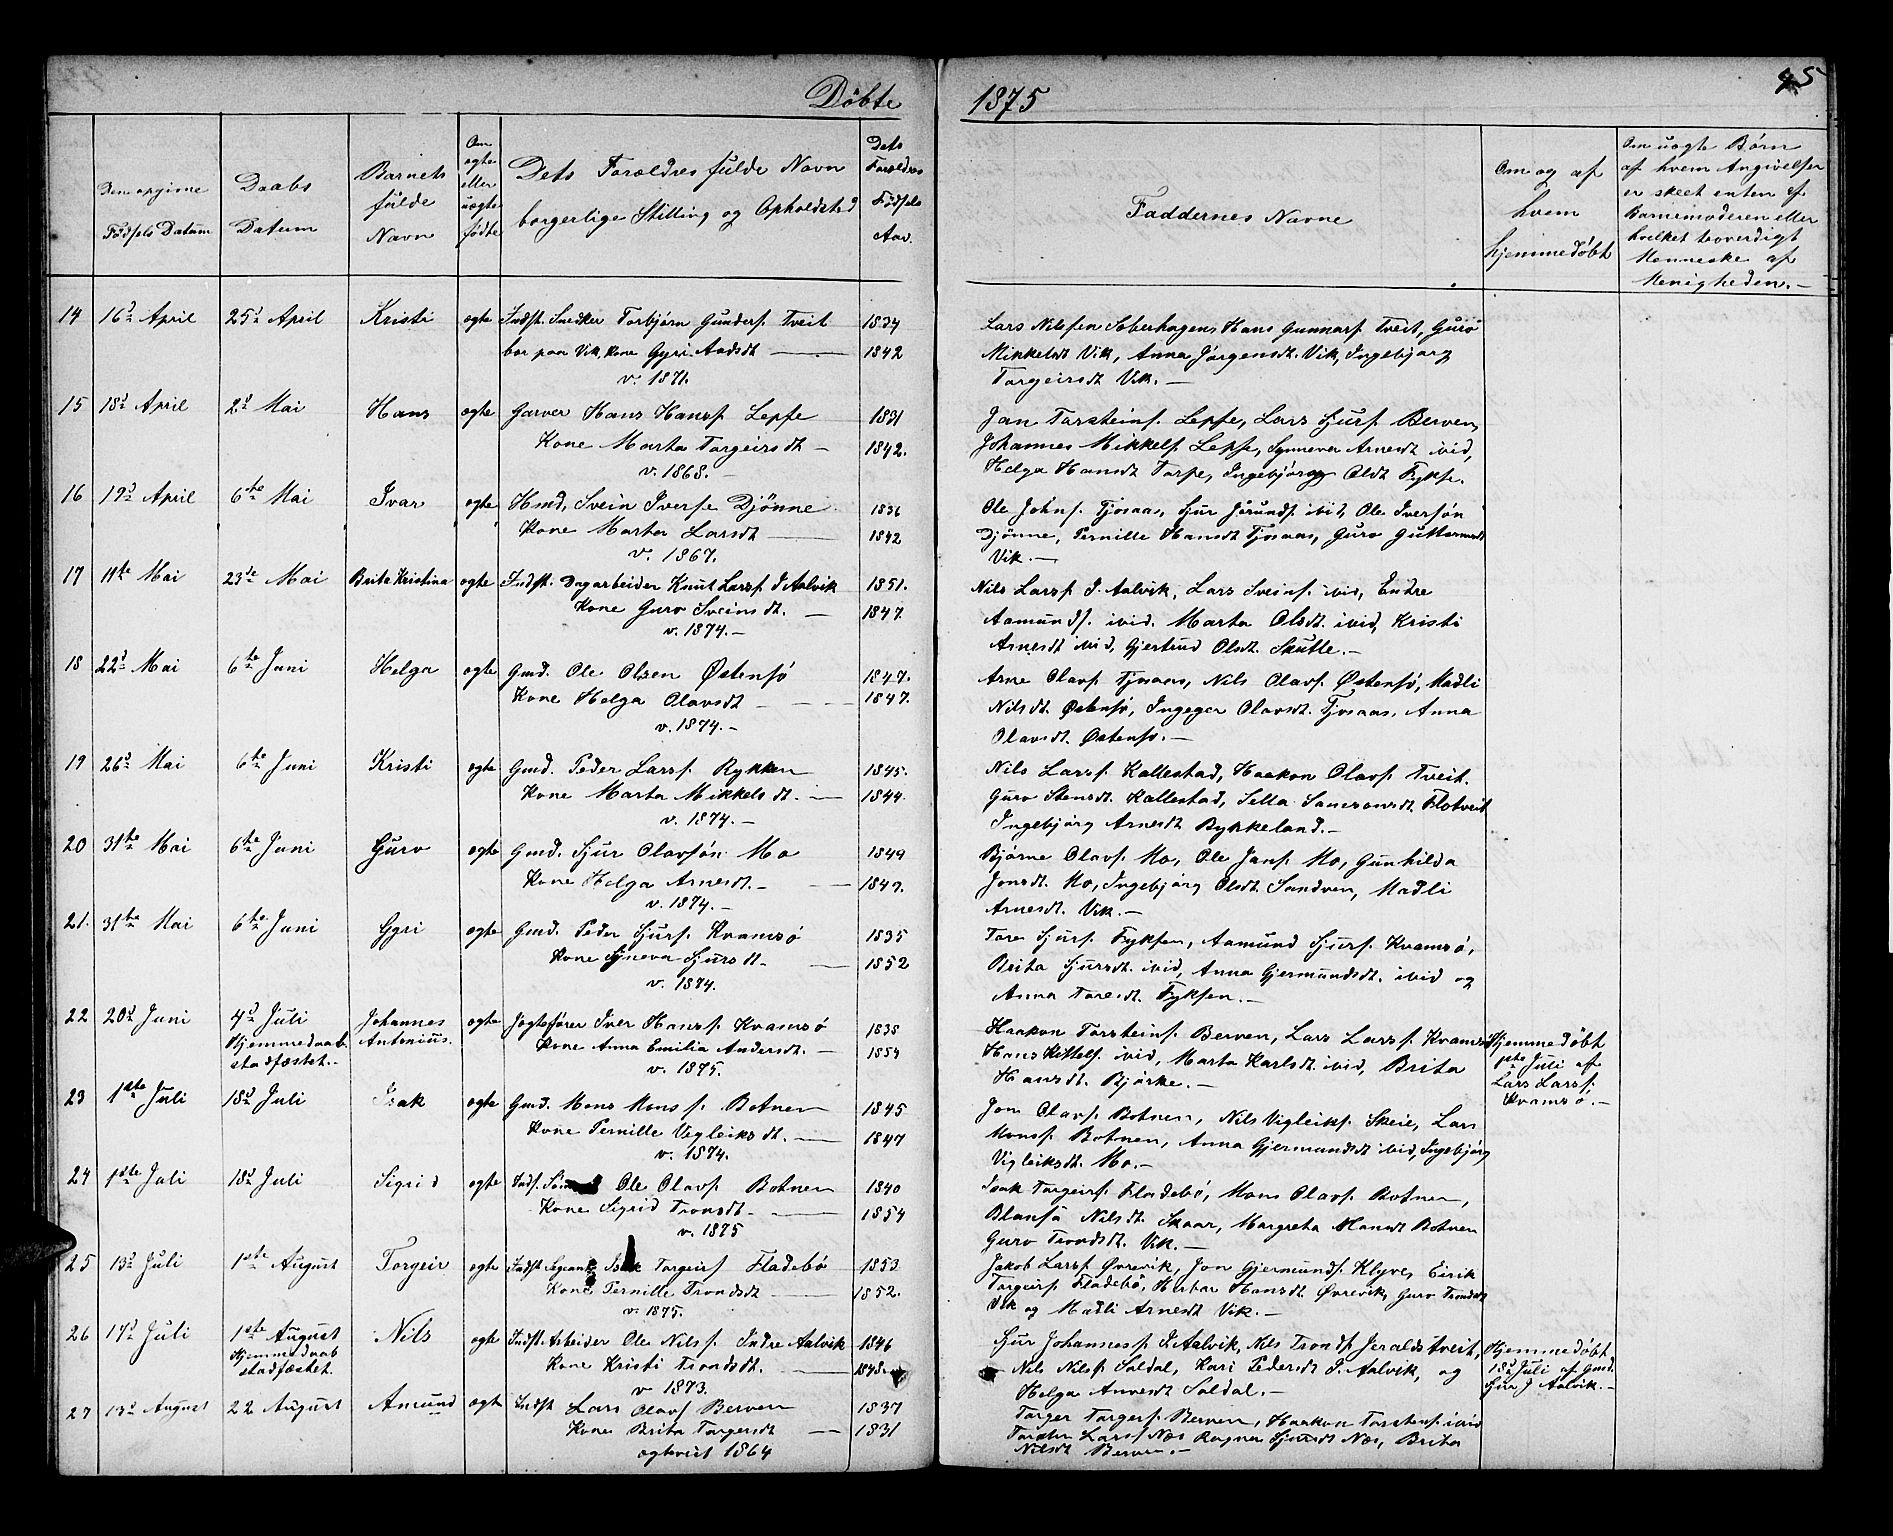 Döbte 1875
45
Den opgivne Fødsels Datum
Daabs Datum
Barnets fulde Navn
Om ægte eller uægte fødte
Dets Forældres fulde Navn borgerlige Stilling og Opholdsted
Dets Forældres Fødsels Aar.
Faddernes Navne
Om og af hvem hjemmedöbt
Om uægte Børn af hvem Angivelsen er skeet enten af Barnemoderen eller hvilket troverdigt Menneske af Menigheden.-
14 16d April 25d April Kristi ægte Indst. Snedker Torbjörn Gunders. Tveit 1834
bor paa Vik, Kone Gyri Aadsdt 1842
v. 1871.
Lars Nilssen Soberhagen, Hans Gunnars. Tveit, Guro
Mikkelsdt Vik, Anna Jörgensdt. Vik, Ingebjørg
Torgeirsdt Vik.-
15 18d April 2d Mai Hans ægte Garver Hans Hanss. Lepse 1831
Kone Marta Torgeirsdt 1842.
v. 1868.-
Jan Torsteins. Lepse, Lars Sjurs. Berven,
Johannes Mikkels. Lepse, Synneva Arnesdt ivid,
Helga Hansdt Torpe, Ingebjörg Olsdt Fykse.
16 19d April 6te Mai Ivar ægte Gmd, Svein Iverse Djönne 1836
Kone Marta Larsdt 1842
v. 1867.
Ole Johns. Tjosaas, Sjur Jörunds. ivid, Ole Iversön
Djönne, Pernille Hansdt Tjosaas, Guro Guttormsdt
Vik.-
17 11te Mai 23de Mai Brita Kristina ægte Indst. Dagarbeider Knut Larss. I. Aalvik 1851.
Kone Guro Sveinsdt. 1847.
v. 1874.-
Nils Larss. I. Aalvik, Lars Sveins. ivid, Endre
Aamunds. ivid. Marta Olsdt. ivid, Kristi
Arnesdt ivid, Gjertrud Olsdt. Skutle.-
18 22d Mai 6te Juni Helga ægte Gmd. Ole Olsen Østensø 1847.
Kone Helga Olavsdt 1847.
v. 1874.-
Arne Olavs. Tjosaas, Nils Olavs. Østensö, Madli
Nilsdt. Østensö, Ingeger Olavsdt. Tjosaas, Anna
Olavsdt. Østensø.-
19 26d Mai 6te Juni Kristi ægte Gmd. Peder Larss. Rykken 1845.
Kone Marta Mikkelsdt. 1844.
v. 1874.-
Nils Larss. Kallestad, Haakon Olavs. Tveit.
Guro Stensdt. Kallestad, Sella Samsonsdt Flotveit
Ingebjörg Arnesdt Byrkeland.-
20 31te Mai 6te Juni Guro ægte Gmd. Sjur Olavsön Mo 1849
Kone Helga Arnesdt.- 1847.
v. 1874.-
Bjørne Olavs. Mo, Ole Jans. Mo, Gunhilda
Jonsdt. Mo, Ingebjørg Olsdt Sandven, Madli
Arnesdt. Vik.-
21. 31te Mai 6te. Juni Gyri ægte Gmd. Peder Sjurs. Kvamsö 1835
Kone Syneva Sjursdt. 1852
v. 1874.
Tore Sjurs. Fyksen, Aamund Sjurs. Kvamsö,
Brita Sjursdt. ivid, Anna Gjermundsdt. ivid og
Anna Toresdt. Fyksen.-
22 20d Juni 4d Juli Johannes ægte Jægtefører Iver Hanss. Kvamsö 1838
Hjemmedaab stadfæstet.- Antonius. Kone Anna Emilia Andersdt.- 1854
v. 1875.
Haakon Torsteins. Berven, Lars Larss. Kvamsö
Hans Kittels. ivid, Marta Karlsdt. ivid, Brita
Hansdt. Björke.-
Hjemmedöbt 1ste Juli af Lars Larss. Kvamsö.-
23 1ste Juli 18d Juli Isak ægte Gmd. Mons Monss. Botnen 1845
Kone Pernille Vegleiksdt. 1847
v. 1874.
Jon Olavs. Botnen, Nils Vigleiks. Skeie, Lars
Monss. Botnen, Anna Gjermundsdt ivid, Ingebjörg
Vigleiksdt. Mo.-
24 1ste Juli 18d Juli Sigrid ægte Inds. Ole Olavs. Botnen 1840
Kone Sigrid Trondsdt.- 1854
v. 1875
Isak Torgeirs. Fladebö, Mons Olavs. Botnen,
Blansa Nilsdt. Skaar, Margreta Monsdt Botnen
Guro Trondsdt. Vik.-
25 13d Juli 1ste August Torgeir ægte Indst Isak Torgeirs Fladebö 1853
Kone Pernille Trondsdt 1852.
v. 1875.
Jakob Larss Øvrevik, Jon Gjermunds. Klyve, Eirik
Torgeirs. Fladebö, Herbor Hansdt Øvrevik, Guro Trondsdt
Vik og Madli Arnesdt Vik.-
26 17d Juli 1ste August Nils ægte Indst. Arbeider Ole Nilss. Indre Aalvik 1846
Hjemmedaab stadfæstet. Kone Kristi Trondsdt. 1848.
v 1873.
Sjur Johanness. I. Aalvik, Nils Tronds. Jeralds Tveit,
Nils Nilss. Soldal, Kari Pedersdt I. Aalvik, og
Helga Arnesdt Soldal.-
Hjemmedöbt 18d Juli af Gmd. Sjur J Aalvik.-
27 13d August 22 August Amund ægte Indst Lars Olavs Berven 1837
Kone Brita Torgersdt 1831
ægteviet 1864
Torger Torgers. Berven, Haakon Torstens. ivid
Torsten Larss. Næs Ragna Sjursdt Næs, Brita
Nilsdt Berven.-